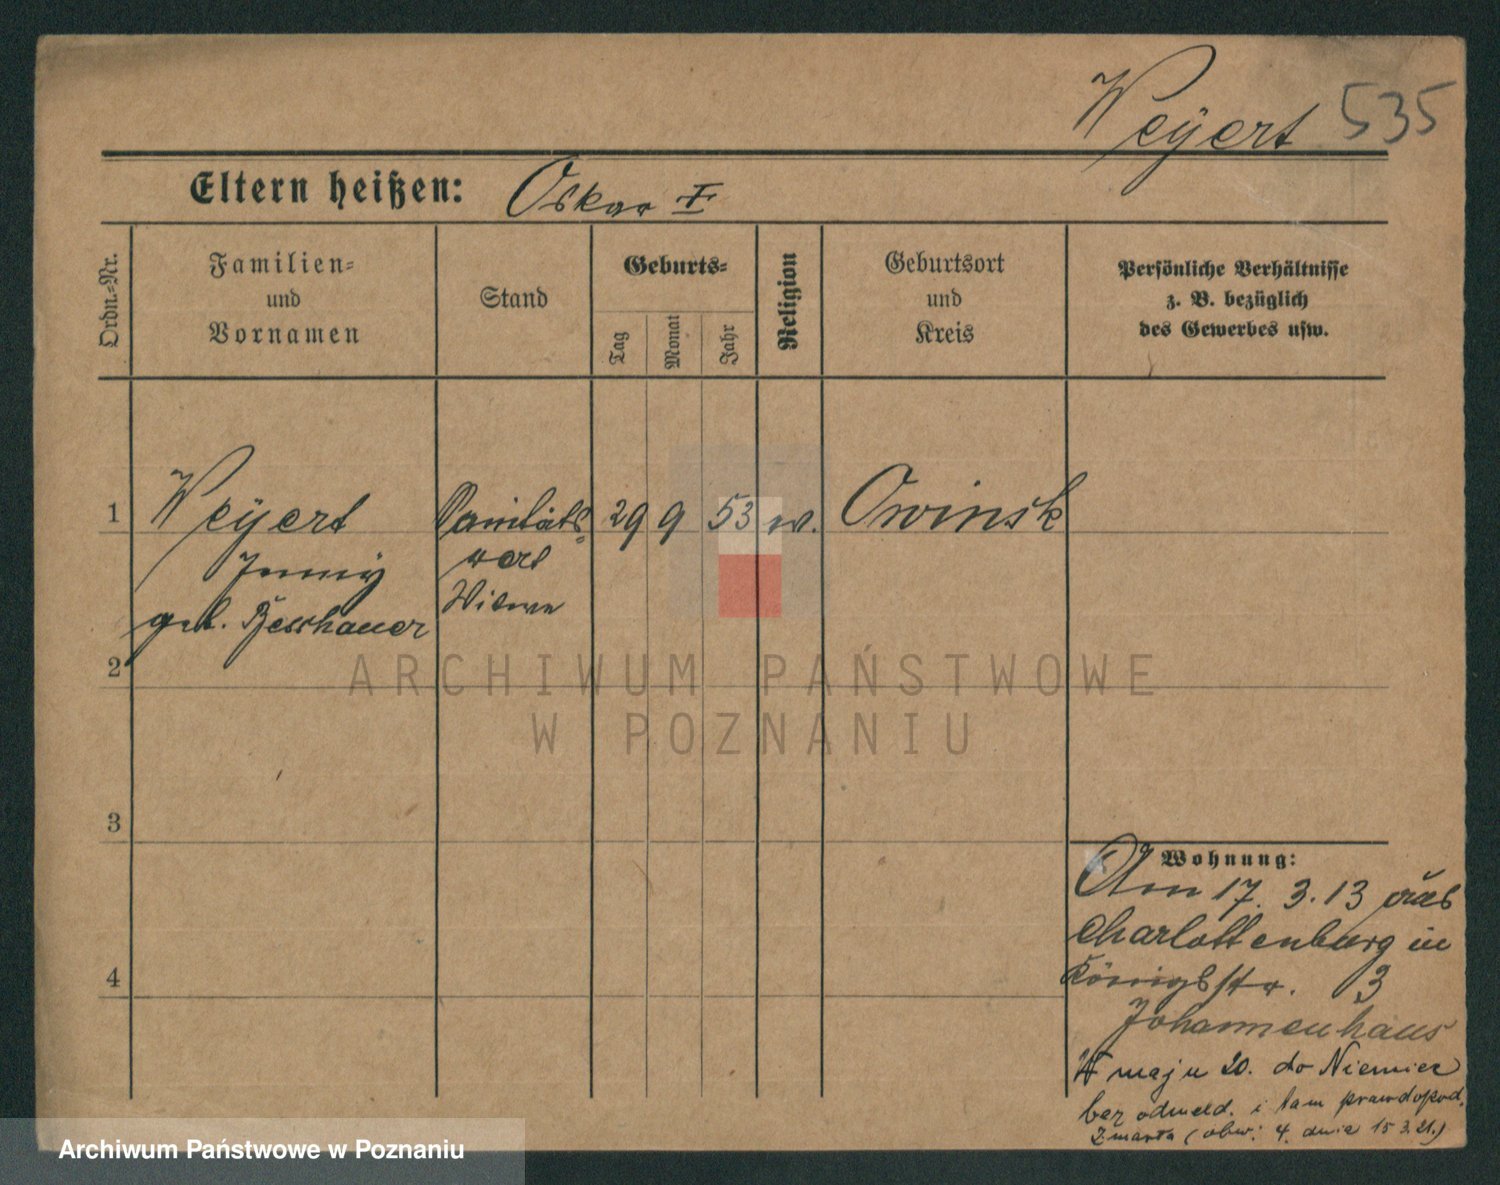 Weÿert 535
Eltern heißen: Oskar I
Ordn.-Nr.
Familien-
und
Vornamen
Stand
Geburts-
Tag
Monat
Jahr
Religion
Geburtsort
und
Kreis
Persönliche Verhältnisse
z. B. bezüglich
des Gewerbes usw.
1 Weÿert Sanitäts- 29 9 53 w. Owinsk
Jenny
Witwe
geb.
2
3
4
Wohnung:
Am 17. 3. 13 aus
Charlottenburg in
Königsstr. 3
Johannenhaus
W maju 20. do Niemiec
bez odmeld. i tam prawdopod.
zmarła (obw: 4. dnia 15 3. 21.)
ARCHIWUM PAŃSTWOWE
W POZNANIU
Archiwum Państwowe w Poznaniu